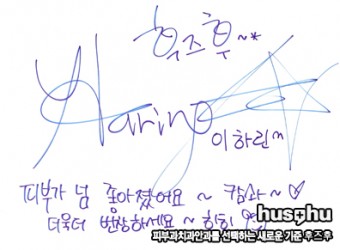 후즈후~*
Harin
이하린m
피부가 넘 좋아졌어요 ~ 캄솨~♡
더욱더 번창하세요 ~ 히히
hushu
피부과치과안과를 선택하는 새로운 기준 후즈후